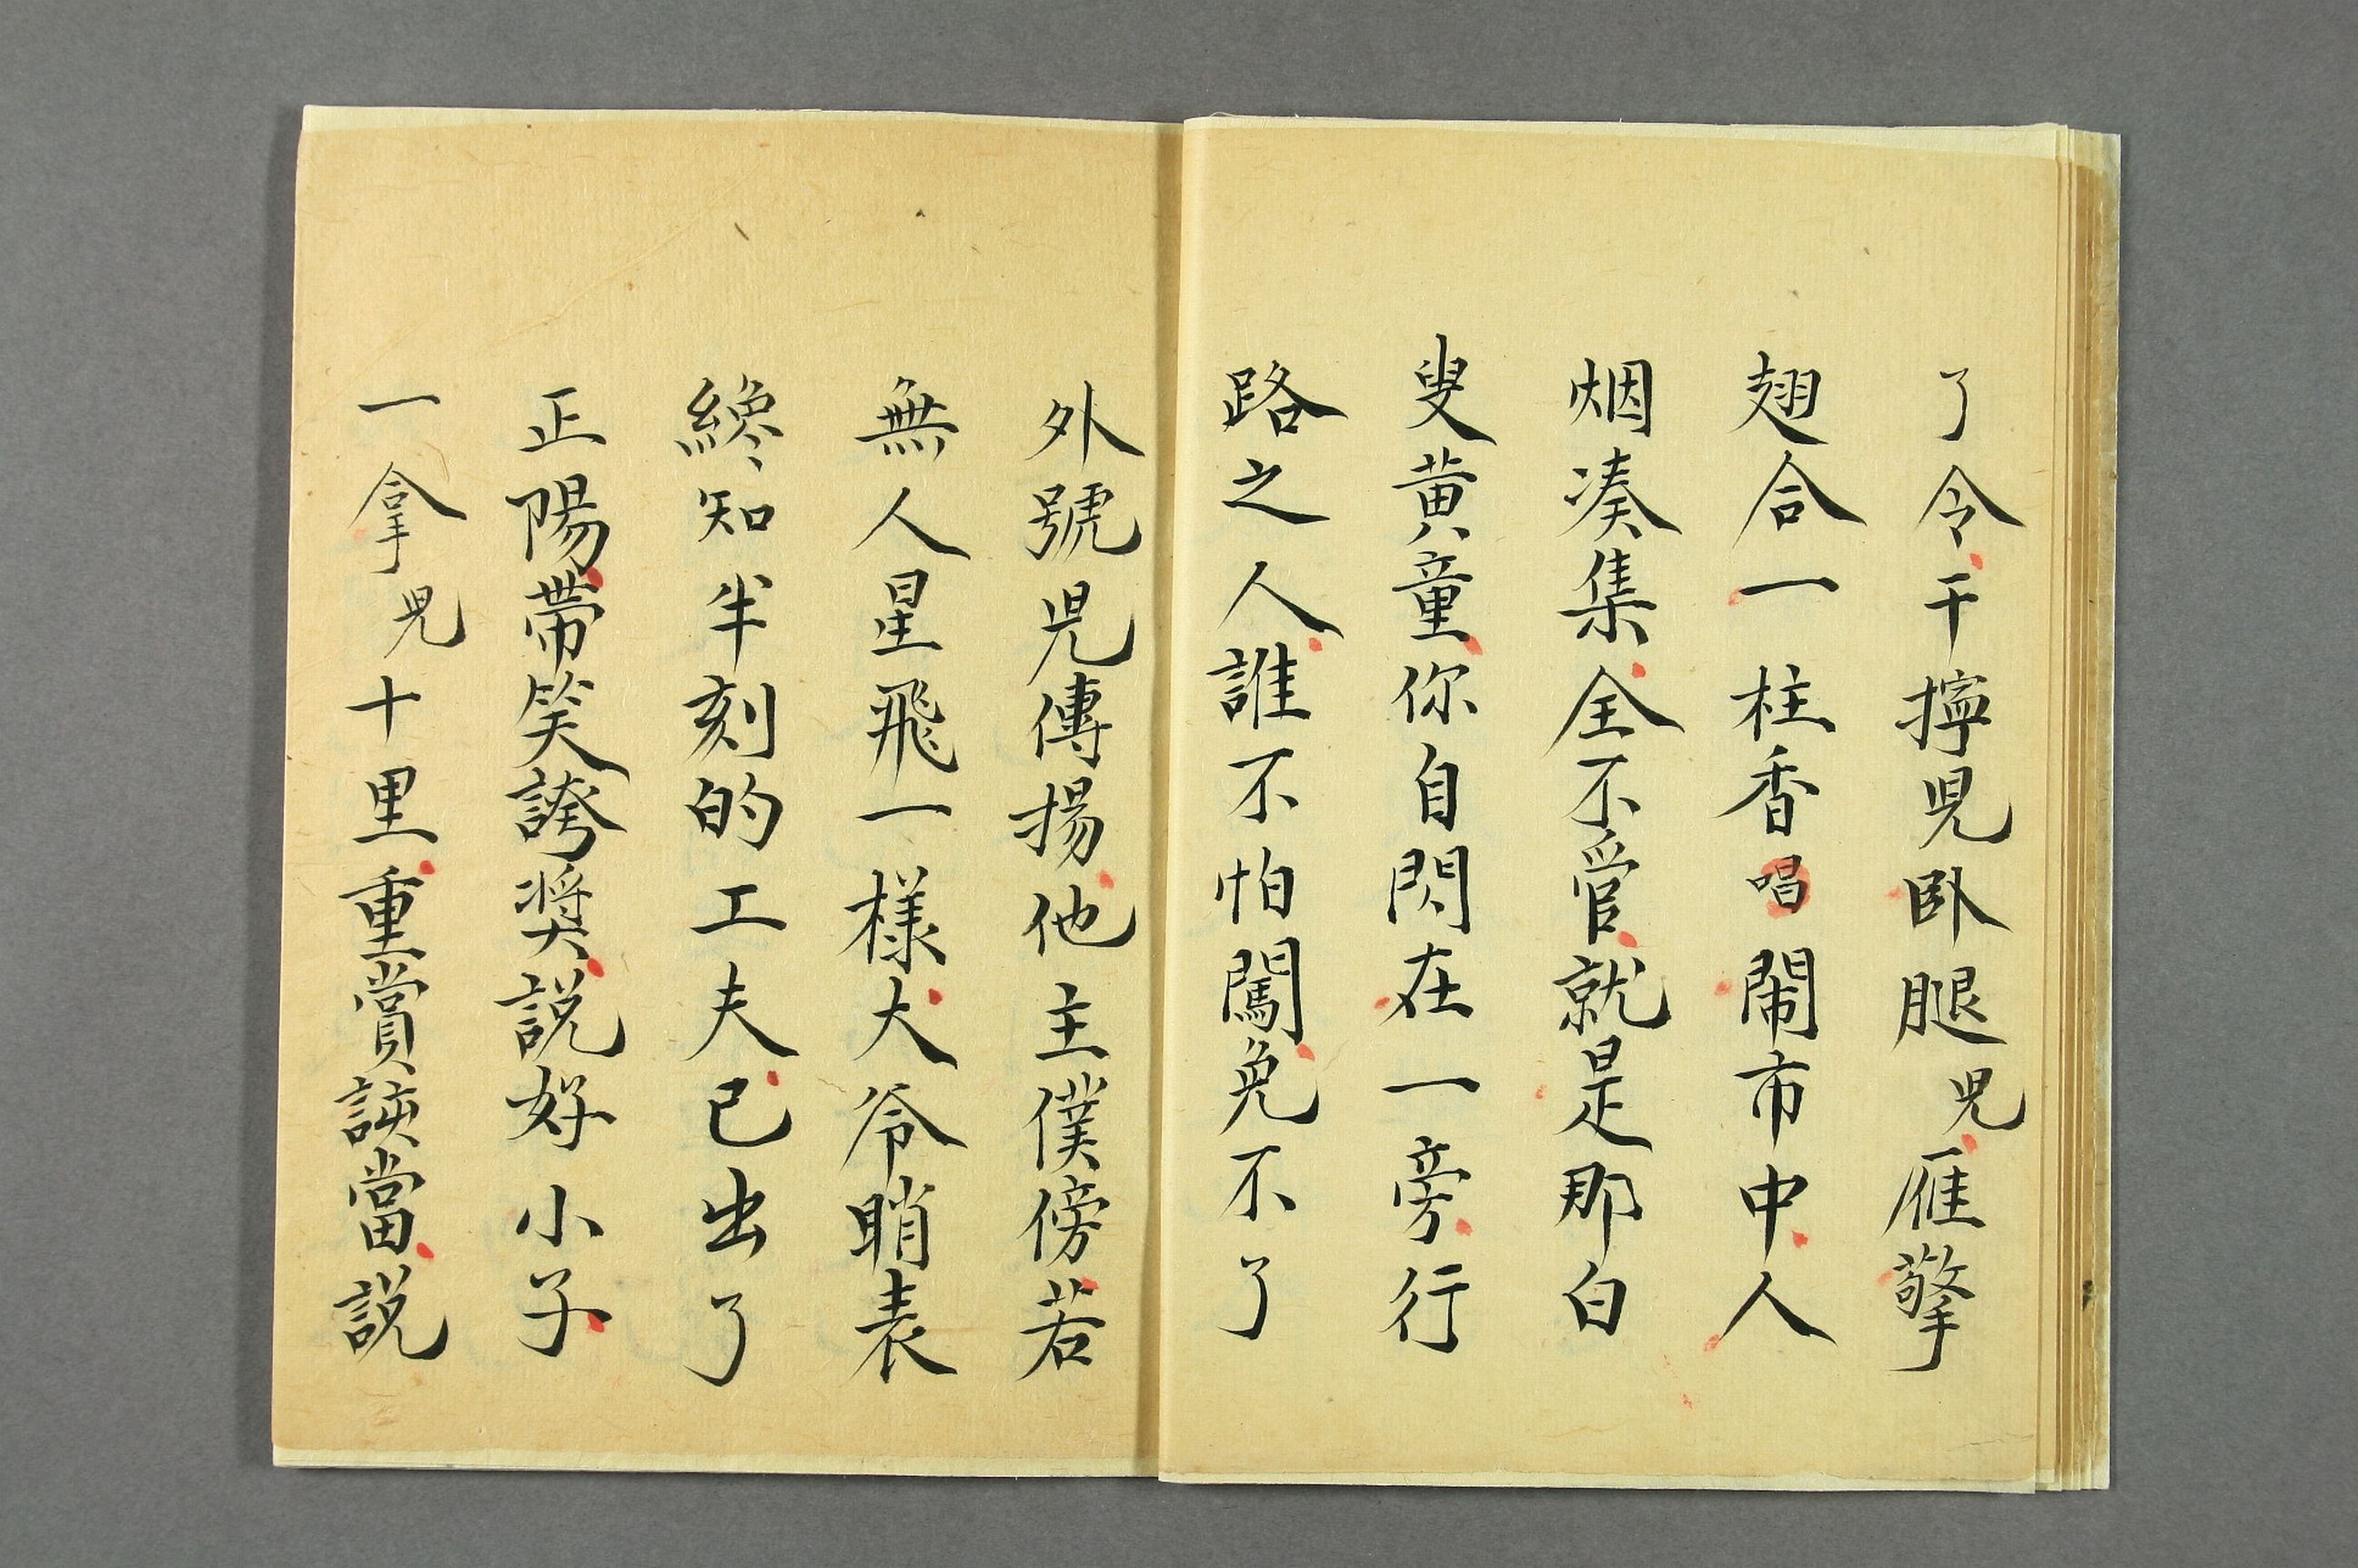 了令干擰児卧腿児雁擎
翅合一柱香唱鬧市中人
烟凑集全不管就是那白
叟黄童你自閃在一旁行
路之人誰不怕闖免不了
外號児傳揚他主僕傍若
無人星飛一樣大爷睄表
纔知半刻的工夫已出了
正陽帶笑誇奨説好小子
一拿児十里重賞該當説